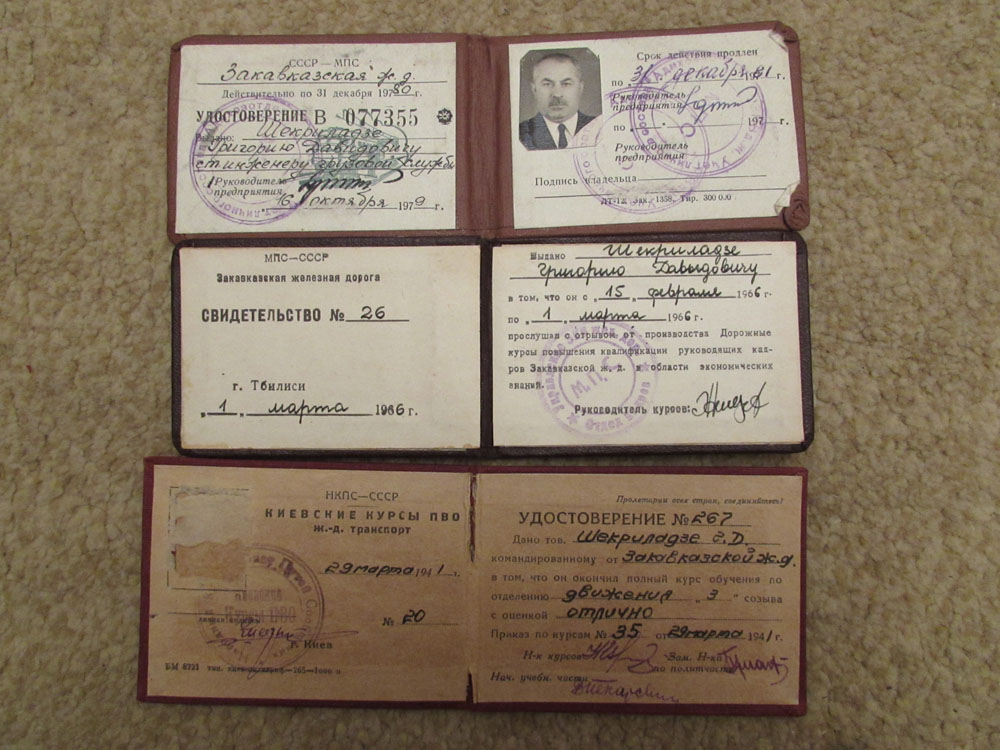 СССР—МПС
Закавказская ж.д.
Действительно по 31 декабря 1980 г.
УДОСТОВЕРЕНИЕ В № 077355
Выдано: Шекриладзе
Григорию Давидовичу
ст. инженеру грузовой службы
Руководитель
предприятия
16 октября 1979 г.
Срок действия продлен
по 31 декабря 1981 г.
Руководитель
предприятия
по 197 г.
Руководитель
предприятия
Подпись владельца
ЛТ-12 Зак. 1358, Тир. 300 000
МПС—СССР
Закавказская железная дорога
СВИДЕТЕЛЬСТВО № 26
г. Тбилиси
„1„ марта 1966 г.
Выдано Шекриладзе
Григорию Давыдовичу
в том, что он с „15„ февраля 1966 г.
по „1„ марта 1966 г.
прослушал с отрывом от производства Дорожные
курсы повышения квалификации руководящих кад-
ров Закавказской ж. д. в области экономических
знаний.
М.П.С.
Отдел кадров
Руководитель курсов:
НКПС—СССР
КИЕВСКИЕ КУРСЫ ПВО
Ж.-Д. ТРАНСПОРТ
29 марта 1941 г.
№ 20
Курсы ПВО
г. Киев
БМ 8721
Пролетарии всех стран, соединяйтесь!
УДОСТОВЕРЕНИЕ № 267
Дано тов. Шекриладзе Г.Д.
командированному от Закавказской ж.д.
в том, что он окончил полный курс обучения по
отделению движения „3" созыва
с оценкой отлично
Приказ по курсам № 35 от 29 марта 1941 г.
Н-к курсов Зам. Н-ка
по политчасти
Нач. учебн. части